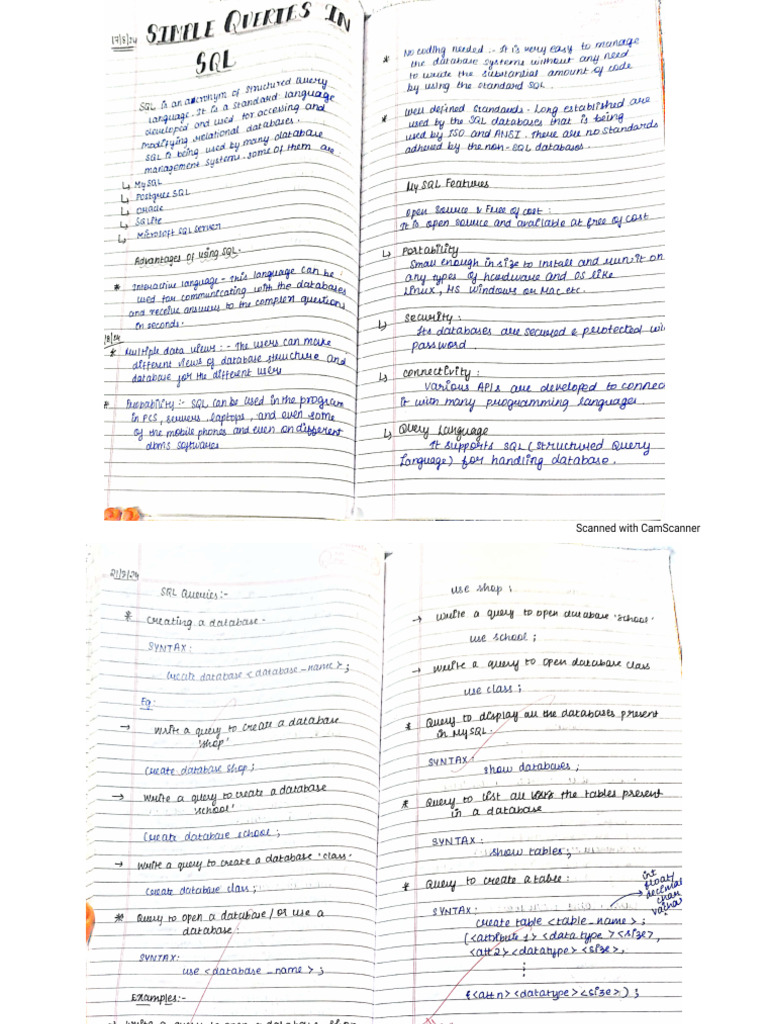 17/8/24
SIMPLE QUERIES IN
SQL
SQL is an acronym of structured Query
language. It is a standard language
developed and used for accessing and
modifying relational databases.
SQL is being used by many database
management systems. some of them are:
↳ MySQL
↳ Postgres SQL
↳ Oracle
↳ SQLite
↳ Microsoft SQL Server
Advantages of using SQL.
* Interactive language - This language can be
used for communicating with the databases
and receive answers to the complex questions
in seconds.
/8/24
* Multiple data views :- The users can make
different views of database structure and
database for the different users
* Probability :- SQL can be used in the program
in PCS, servers, laptops, and even some
of the mobile phones and even on different
dbms softwares
* No coding needed :- It is very easy to manage
the database systems without any need
to write the substantial amount of code
by using the standard SQL.
* Well defined standards - Long established are
used by the SQL databases that is being
used by ISO and ANSI. There are no standards
adhered by the non-SQL databases.
My SQL Features
Open Source & Free of cost :
It is open source and available at free of cost
↳ Portability
Small enough in size to install and run it on
any types of hardware and OS like
Linux, MS Windows or Mac etc.
↳ Security :
Its databases are secured & protected wi
password.
↳ Connectivity :
Various APIs are developed to connec
it with many programming languages.
↳ Query Language
It supports SQL (Structured Query
Language) for handling database.
Scanned with CamScanner
SQL Queries :-
* Creating a database.
SYNTAX :
Create database <database_name> ;
Eg:
→ Write a query to create a database
'shop'
Create database shop ;
→ Write a query to create a database
'school'
Create database school ;
→ Write a query to create a database 'class'
Create database class ;
* Query to open a database / or use a
database :
SYNTAX:
use <database_name> ;
Examples :-
use shop ;
→ Write a query to open database 'school'
use school ;
→ Write a query to open database class
use class ;
* Query to display all the databases present
in MySQL.
SYNTAX :
show databases ;
* Query to list all the tables present
in a database
SYNTAX :
show tables ;
* Query to create a table :
int
float/
decimal
char
SYNTAX :
create table <table_name> ;
(<attribute 1> <data type> <size>,
<att 2> <datatype> <size>,
⋮
<att n> <datatype> <size>) ;